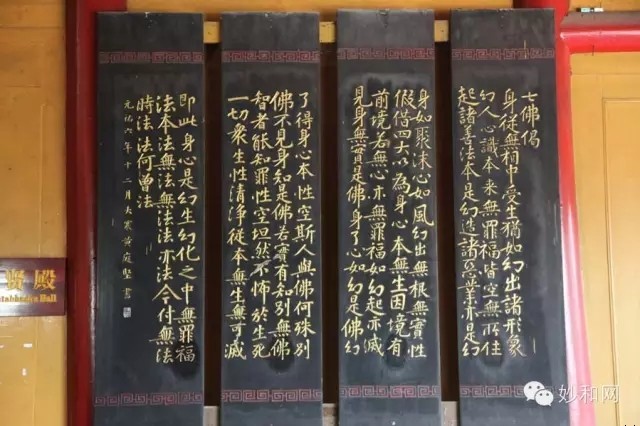 七佛偈
身從無相中受生猶如幻出諸形象
幻人心識本來無罪福皆空無所住
起諸善法本是幻造諸惡業亦是幻
身如聚沫心如風幻出無根無實性
假借四大以為身心本無生因境有
前境若無心亦無罪福如幻起亦滅
見身無實是佛身了心如幻是佛幻
了得身心本性空斯人與佛何殊別
佛不見身知是佛若實有知別無佛
智者能知罪性空坦然不怖於生死
一切衆生性清淨從本無生無可滅
即此身心是幻生幻化之中無罪福
法本法無法無法法亦法今付無法
時法法何曾法
元祐六年十二月大寒黃庭堅書
賢殿
Hall
妙和网